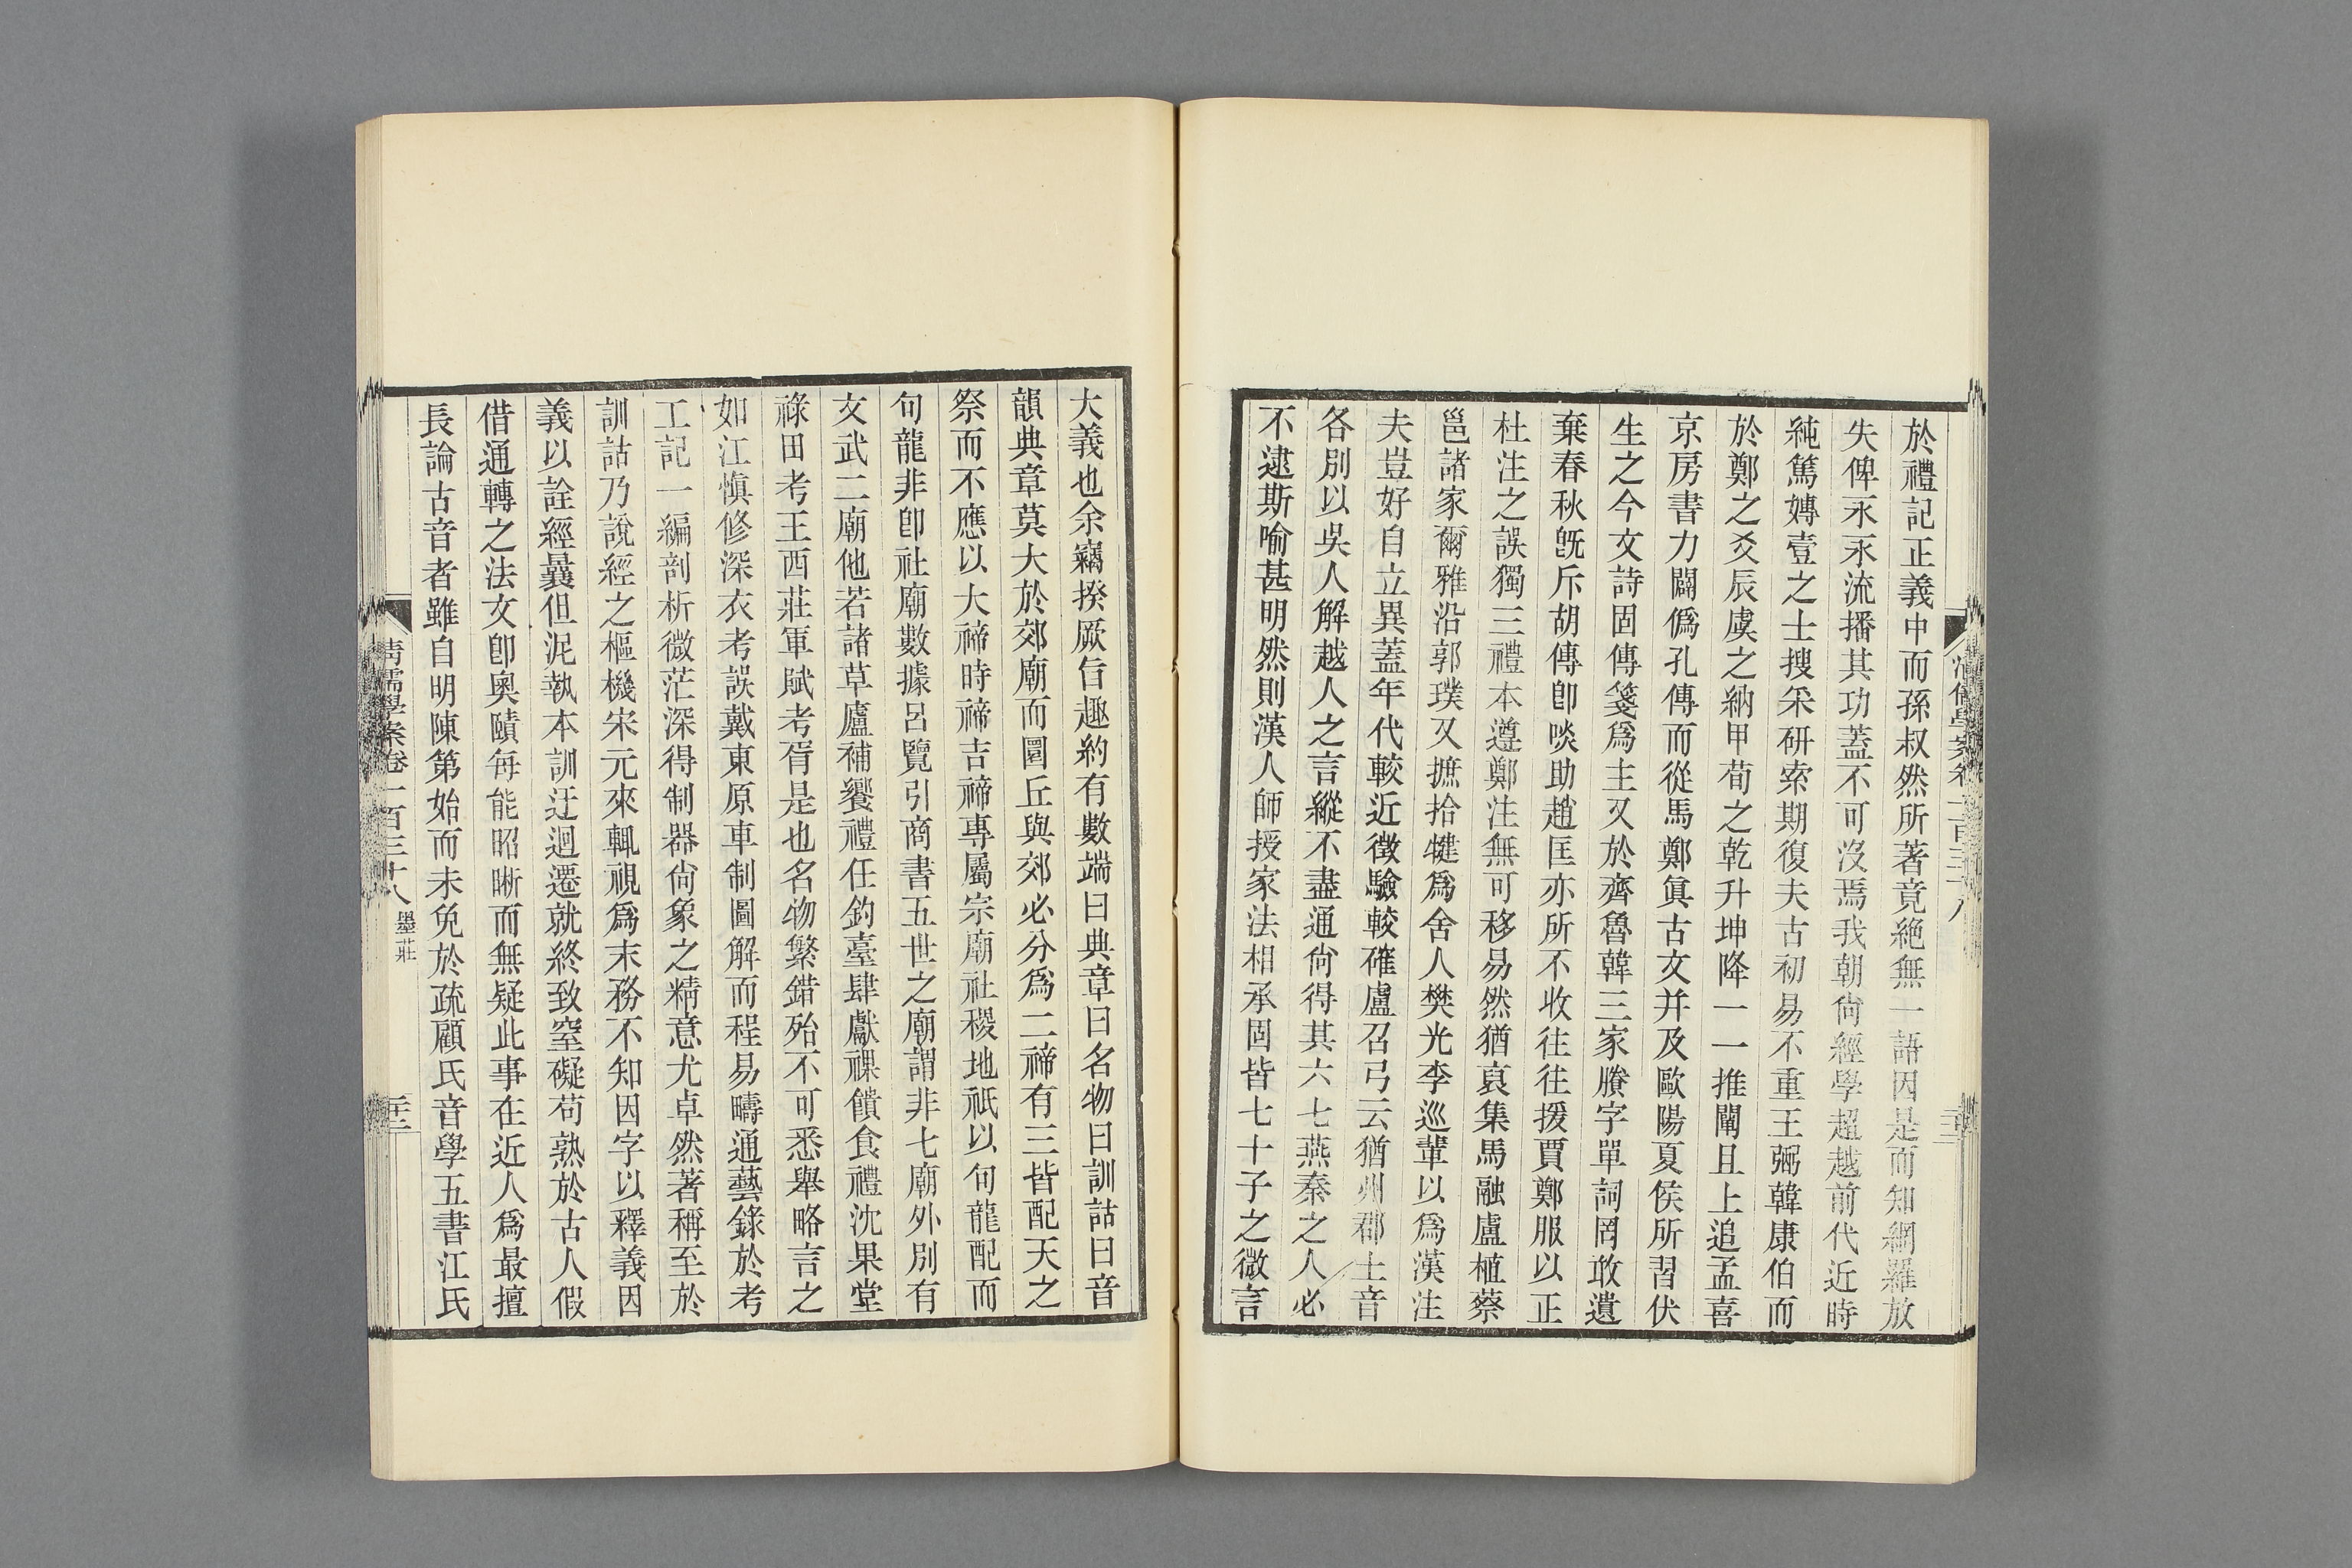 於禮記正義中而孫叔然所著竟絕無一語因是而知網羅放
失俾汞汞流播其功蓋不可沒焉我朝尙經學超越前代近時
純篤嫥壹之士搜采研索期復夫古初易不重王弼韓康伯而
於鄭之爻辰虞之納甲荀之乾升坤降一一推闡且上追孟喜
京房書力闢僞孔傳而從馬鄭眞古文并及歐陽夏侯所習伏
生之今文詩固傳箋爲主又於齊魯韓三家賸字單詞罔敢遺
棄春秋旣斥胡傳卽啖助趙匡亦所不收往往援賈鄭服以正
杜注之誤獨三禮本遵鄭注無可移易然猶裒集馬融盧植蔡
邕諸家爾雅沿郭璞又摭拾犍爲舍人樊光李巡輩以爲漢注
夫豈好自立異蓋年代較近徵驗較確盧召弓云猶州郡土音
各別以吳人解越人之言縱不盡通尙得其六七燕秦之人必
不逮斯喻甚明然則漢人師授家法相承固皆七十子之微言
大義也余竊揆厥旨趣約有數端曰典章曰名物曰訓詁曰音
韻典章莫大於郊廟而圜丘與郊必分爲二禘有三皆配天之
祭而不應以大禘時禘吉禘專屬宗廟社稷地祇以句龍配而
句龍非卽社廟數據呂覽引商書五世之廟謂非七廟外別有
文武二廟他若諸草廬補饗禮任釣臺肆獻祼饋食禮沈果堂
祿田考王西莊軍賦考胥是也名物繁錯殆不可悉舉略言之
如江愼修深衣考誤戴東原車制圖解而程易疇通藝錄於考
工記一編剖析微茫深得制器尙象之精意尤卓然著稱至於
訓詁乃說經之樞機宋元來輒視爲末務不知因字以釋義因
義以詮經曩但泥執本訓迂迴遷就終致窒礙苟熟於古人假
借通轉之法文卽奧賾每能昭晰而無疑此事在近人爲最擅
長論古音者雖自明陳第始而未免於疏顧氏音學五書江氏
清儒學案卷一百三十八 墨莊